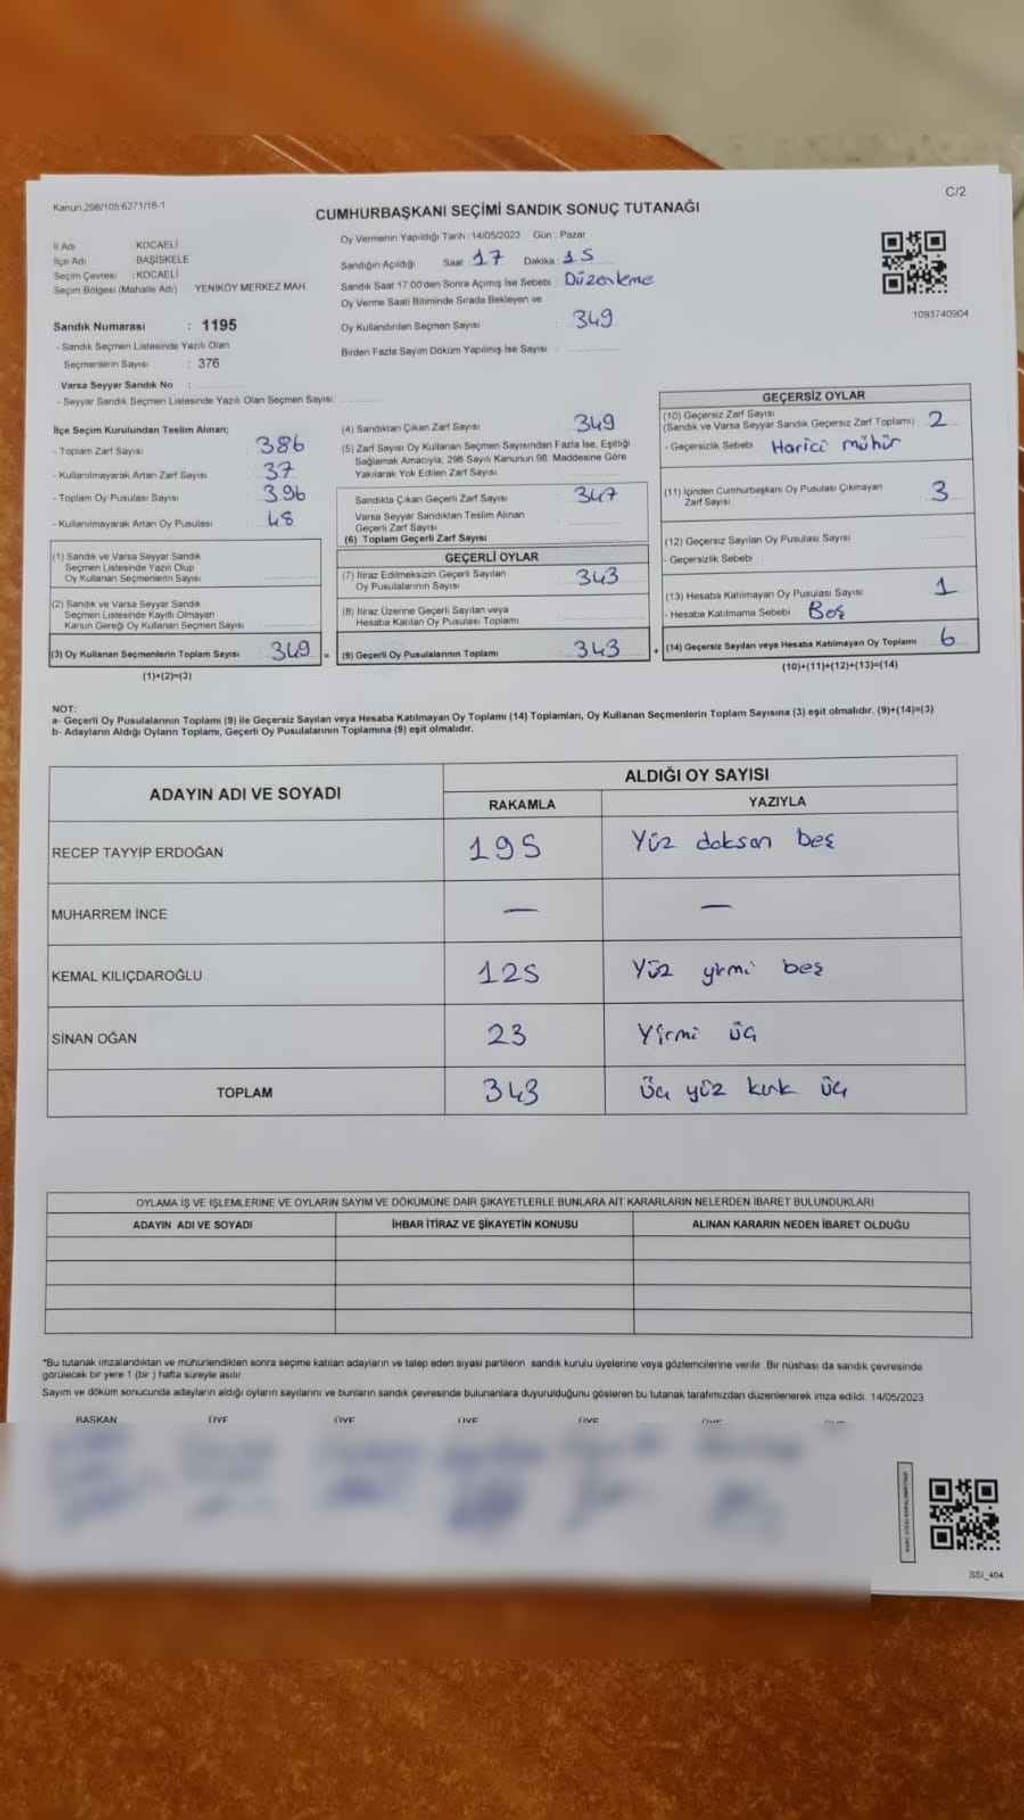 C/2
Kanun 298/105:6271/16-1
CUMHURBAŞKANI SEÇİMİ SANDIK SONUÇ TUTANAĞI
İl Adı KOCAELİ
İlçe Adı BAŞİSKELE
Seçim Çevresi : KOCAELİ
Seçim Bölgesi (Mahalle Adı) YENİKÖY MERKEZ MAH.
Sandık Numarası : 1195
- Sandık Seçmen Listesinde Yazılı Olan
Seçmenlerin Sayısı : 376
Varsa Seyyar Sandık No :
- Seyyar Sandık Seçmen Listesinde Yazılı Olan Seçmen Sayısı
Oy Vermenin Yapıldığı Tarih : 14/05/2023 Gün : Pazar
Sandığın Açıldığı Saat 17 Dakika : 15
Sandık Saat 17.00'den Sonra Açılmış İse Sebebi : Düzenleme
Oy Verme Saati Bitiminde Sırada Bekleyen ve
Oy Kullandırılan Seçmen Sayısı : 349
Birden Fazla Sayım Döküm Yapılmış İse Sayısı
1093740904
İlçe Seçim Kurulundan Teslim Alınan;
- Toplam Zarf Sayısı 386
- Kullanılmayarak Artan Zarf Sayısı 37
- Toplam Oy Pusulası Sayısı 396
- Kullanılmayarak Artan Oy Pusulası 48
(1) Sandık ve Varsa Seyyar Sandık
Seçmen Listesinde Yazılı Olup
Oy Kullanan Seçmenlerin Sayısı
(2) Sandık ve Varsa Seyyar Sandık
Seçmen Listesinde Kayıtlı Olmayan
Kanun Gereği Oy Kullanan Seçmen Sayısı
(3) Oy Kullanan Seçmenlerin Toplam Sayısı 349 =
(1)+(2)=(3)
(4) Sandıktan Çıkan Zarf Sayısı 349
(5) Zarf Sayısı Oy Kullanan Seçmen Sayısından Fazla İse, Eşitliği
Sağlamak Amacıyla; 298 Sayılı Kanunun 98. Maddesine Göre
Yakılarak Yok Edilen Zarf Sayısı
Sandıkta Çıkan Geçerli Zarf Sayısı 347
Varsa Seyyar Sandıktan Teslim Alınan
Geçerli Zarf Sayısı
(6) Toplam Geçerli Zarf Sayısı
GEÇERLİ OYLAR
(7) İtiraz Edilmeksizin Geçerli Sayılan
Oy Pusulalarının Sayısı 343
(8) İtiraz Üzerine Geçerli Sayılan veya
Hesaba Katılan Oy Pusulası Toplamı
(9) Geçerli Oy Pusulalarının Toplamı 343 +
GEÇERSİZ OYLAR
(10) Geçersiz Zarf Sayısı
(Sandık ve Varsa Seyyar Sandık Geçersiz Zarf Toplamı) 2
- Geçersizlik Sebebi Harici mühür
(11) İçinden Cumhurbaşkanı Oy Pusulası Çıkmayan
Zarf Sayısı 3
(12) Geçersiz Sayılan Oy Pusulası Sayısı
- Geçersizlik Sebebi
(13) Hesaba Katılmayan Oy Pusulası Sayısı 1
- Hesaba Katılmama Sebebi Boş
(14) Geçersiz Sayılan veya Hesaba Katılmayan Oy Toplamı 6
(10)+(11)+(12)+(13)=(14)
NOT:
a- Geçerli Oy Pusulalarının Toplamı (9) ile Geçersiz Sayılan veya Hesaba Katılmayan Oy Toplamı (14) Toplamları, Oy Kullanan Seçmenlerin Toplam Sayısına (3) eşit olmalıdır. (9)+(14)=(3)
b- Adayların Aldığı Oyların Toplamı, Geçerli Oy Pusulalarının Toplamına (9) eşit olmalıdır.
ADAYIN ADI VE SOYADI ALDIĞI OY SAYISI
RAKAMLA YAZIYLA
RECEP TAYYİP ERDOĞAN 195 Yüz doksan beş
MUHARREM İNCE — —
KEMAL KILIÇDAROĞLU 125 Yüz yirmi beş
SİNAN OĞAN 23 Yirmi üç
TOPLAM 343 Üç yüz kırk üç
OYLAMA İŞ VE İŞLEMLERİNE VE OYLARIN SAYIM VE DÖKÜMÜNE DAİR ŞİKAYETLERLE BUNLARA AİT KARARLARIN NELERDEN İBARET BULUNDUKLARI
ADAYIN ADI VE SOYADI İHBAR İTİRAZ VE ŞİKAYETİN KONUSU ALINAN KARARIN NEDEN İBARET OLDUĞU
*Bu tutanak imzalandıktan ve mühürlendikten sonra seçime katılan adayların ve talep eden siyasi partilerin sandık kurulu üyelerine veya gözlemcilerine verilir. Bir nüshası da sandık çevresinde
görülecek bir yere 1 (bir) hafta süreyle asılır.
Sayım ve döküm sonucunda adayların aldığı oyların sayılarını ve bunların sandık çevresinde bulunanlara duyurulduğunu gösteren bu tutanak tarafımızdan düzenlenerek imza edildi. 14/05/2023
BAŞKAN ÜYE ÜYE ÜYE ÜYE ÜYE
SSI_404